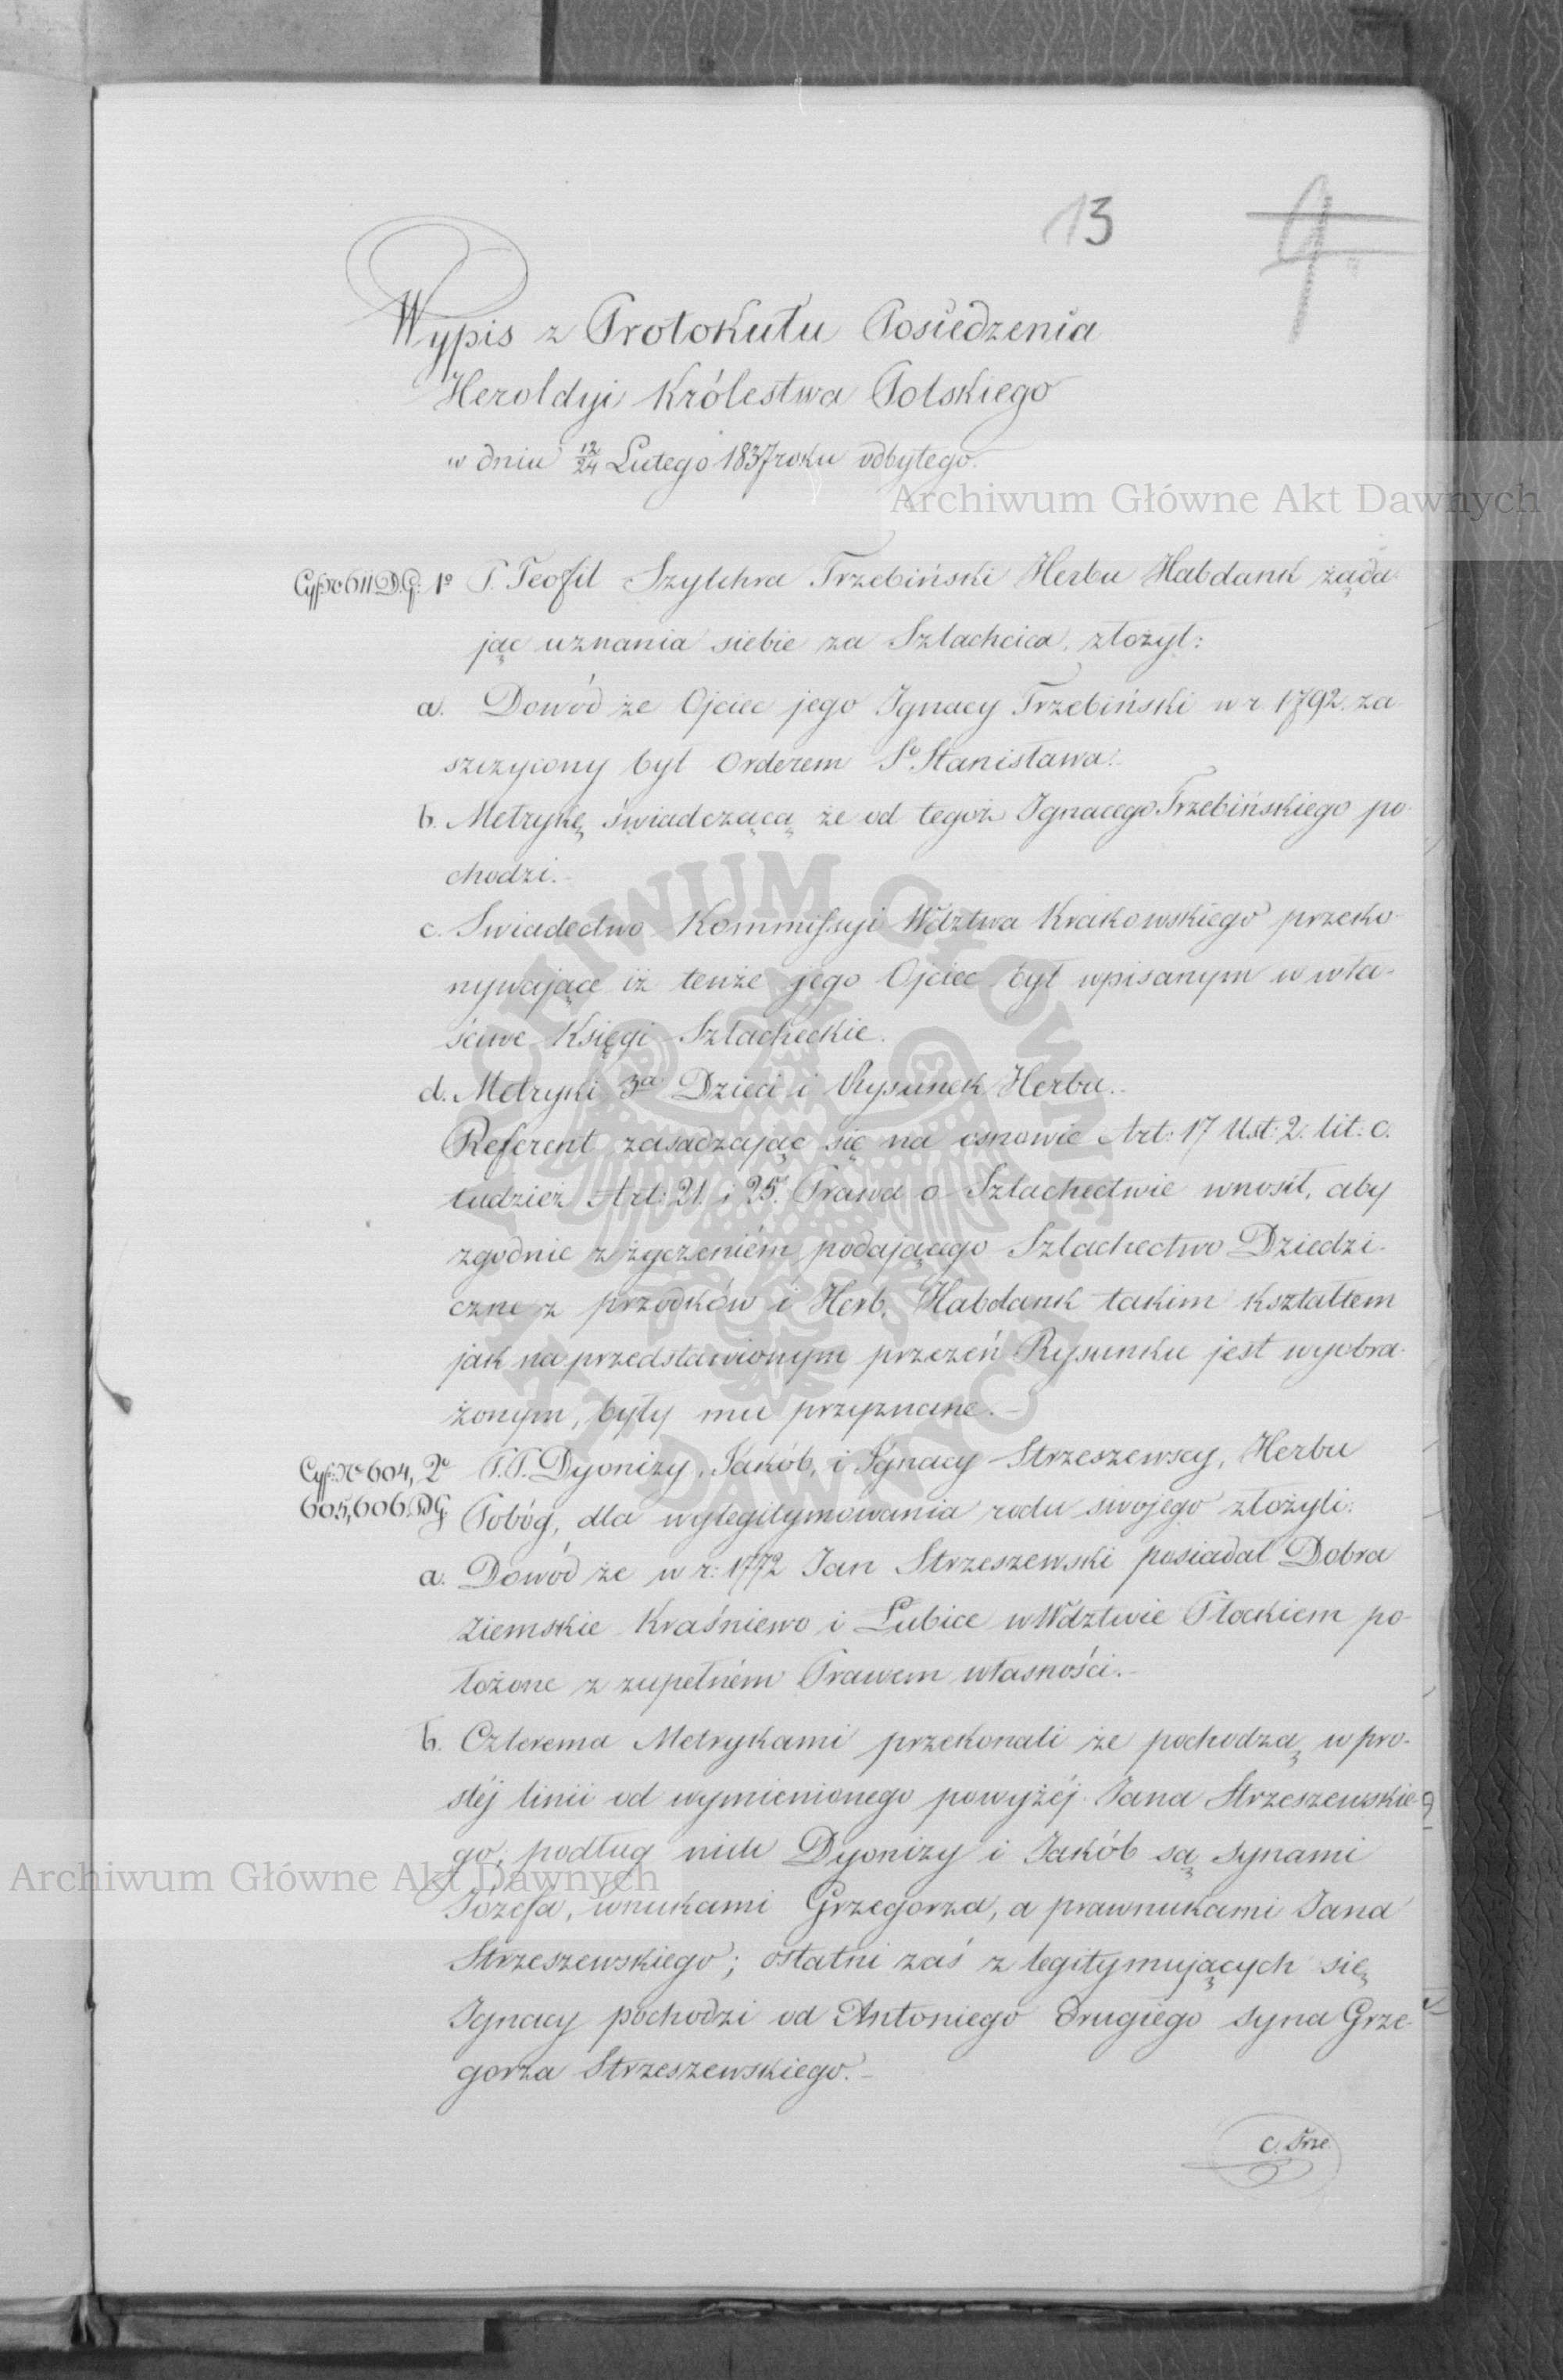 13
Wypis z Protokułu Posiedzenia
Heroldyi Królestwa Polskiego
w dniu 12/24 Lutego 1837 roku odbytego.
Archiwum Główne Akt Dawnych
Cyf: No 611 D.G. 1o P. Teofil Trzebiński Herbu Habdank żąda-
jąc uznania siebie za Szlachcica, złożył:
a. Dowód że Ojciec jego Ignacy Trzebiński w r. 1792. za-
szczycony był Orderem So Stanisława.-
b. Metrykę świadczącą że od tegoż Ignacego Trzebińskiego po-
chodzi.-
c. Swiadectwo Kommissyi Wdztwa Krakowskiego przeko-
nywające iż tenże jego Ojciec był wpisanym w wła-
ściwe Księgi Szlacheckie.
d. Metryki 3a Dzieci i Rysunek Herbu.-
Referent zasadzając się na osnowie Art: 17 Ust: 2. lit: c.
tudzież Art: 21. i 25. Prawa o Szlachectwie wnosił, aby
zgodnie z życzeniém podającego Szlachectwo Dziedzi-
czne z przodków i Herb, Habdank takim kształtem
jak na przedstawionym przezeń Rysunku jest wyobra-
żonym, były mu przyznane.-
Cyf: No 604, 2o P.P. Dyonizy, Jakób, i Ignacy Strzeszewscy, Herbu
605, 606 D.G. Pobóg, dla wylegitymowania rodu swojego złożyli:
a. Dowód że w r: 1772 Jan Strzeszewski posiadał Dobra
ziemskie Kraśniewo i Lubice w Wdztwie Płockiem po-
łożone z zupełném Prawem własności.-
b. Czterema Metrykami przekonali że pochodzą w pro-
stéj linii od wymienionego powyżéj Jana Strzeszewskie-
go; podług nich Dyonizy i Jakób są synami
Archiwum Główne Akt Dawnych
Józefa, wnukami Grzegorza, a prawnukami Jana
Strzeszewskiego; ostatni zaś z legitymujących się
Ignacy pochodzi od Antoniego drugiego syna Grze-
gorza Strzeszewskiego.-
ARCHIWUM GŁÓWNE AKT DAWNYCH